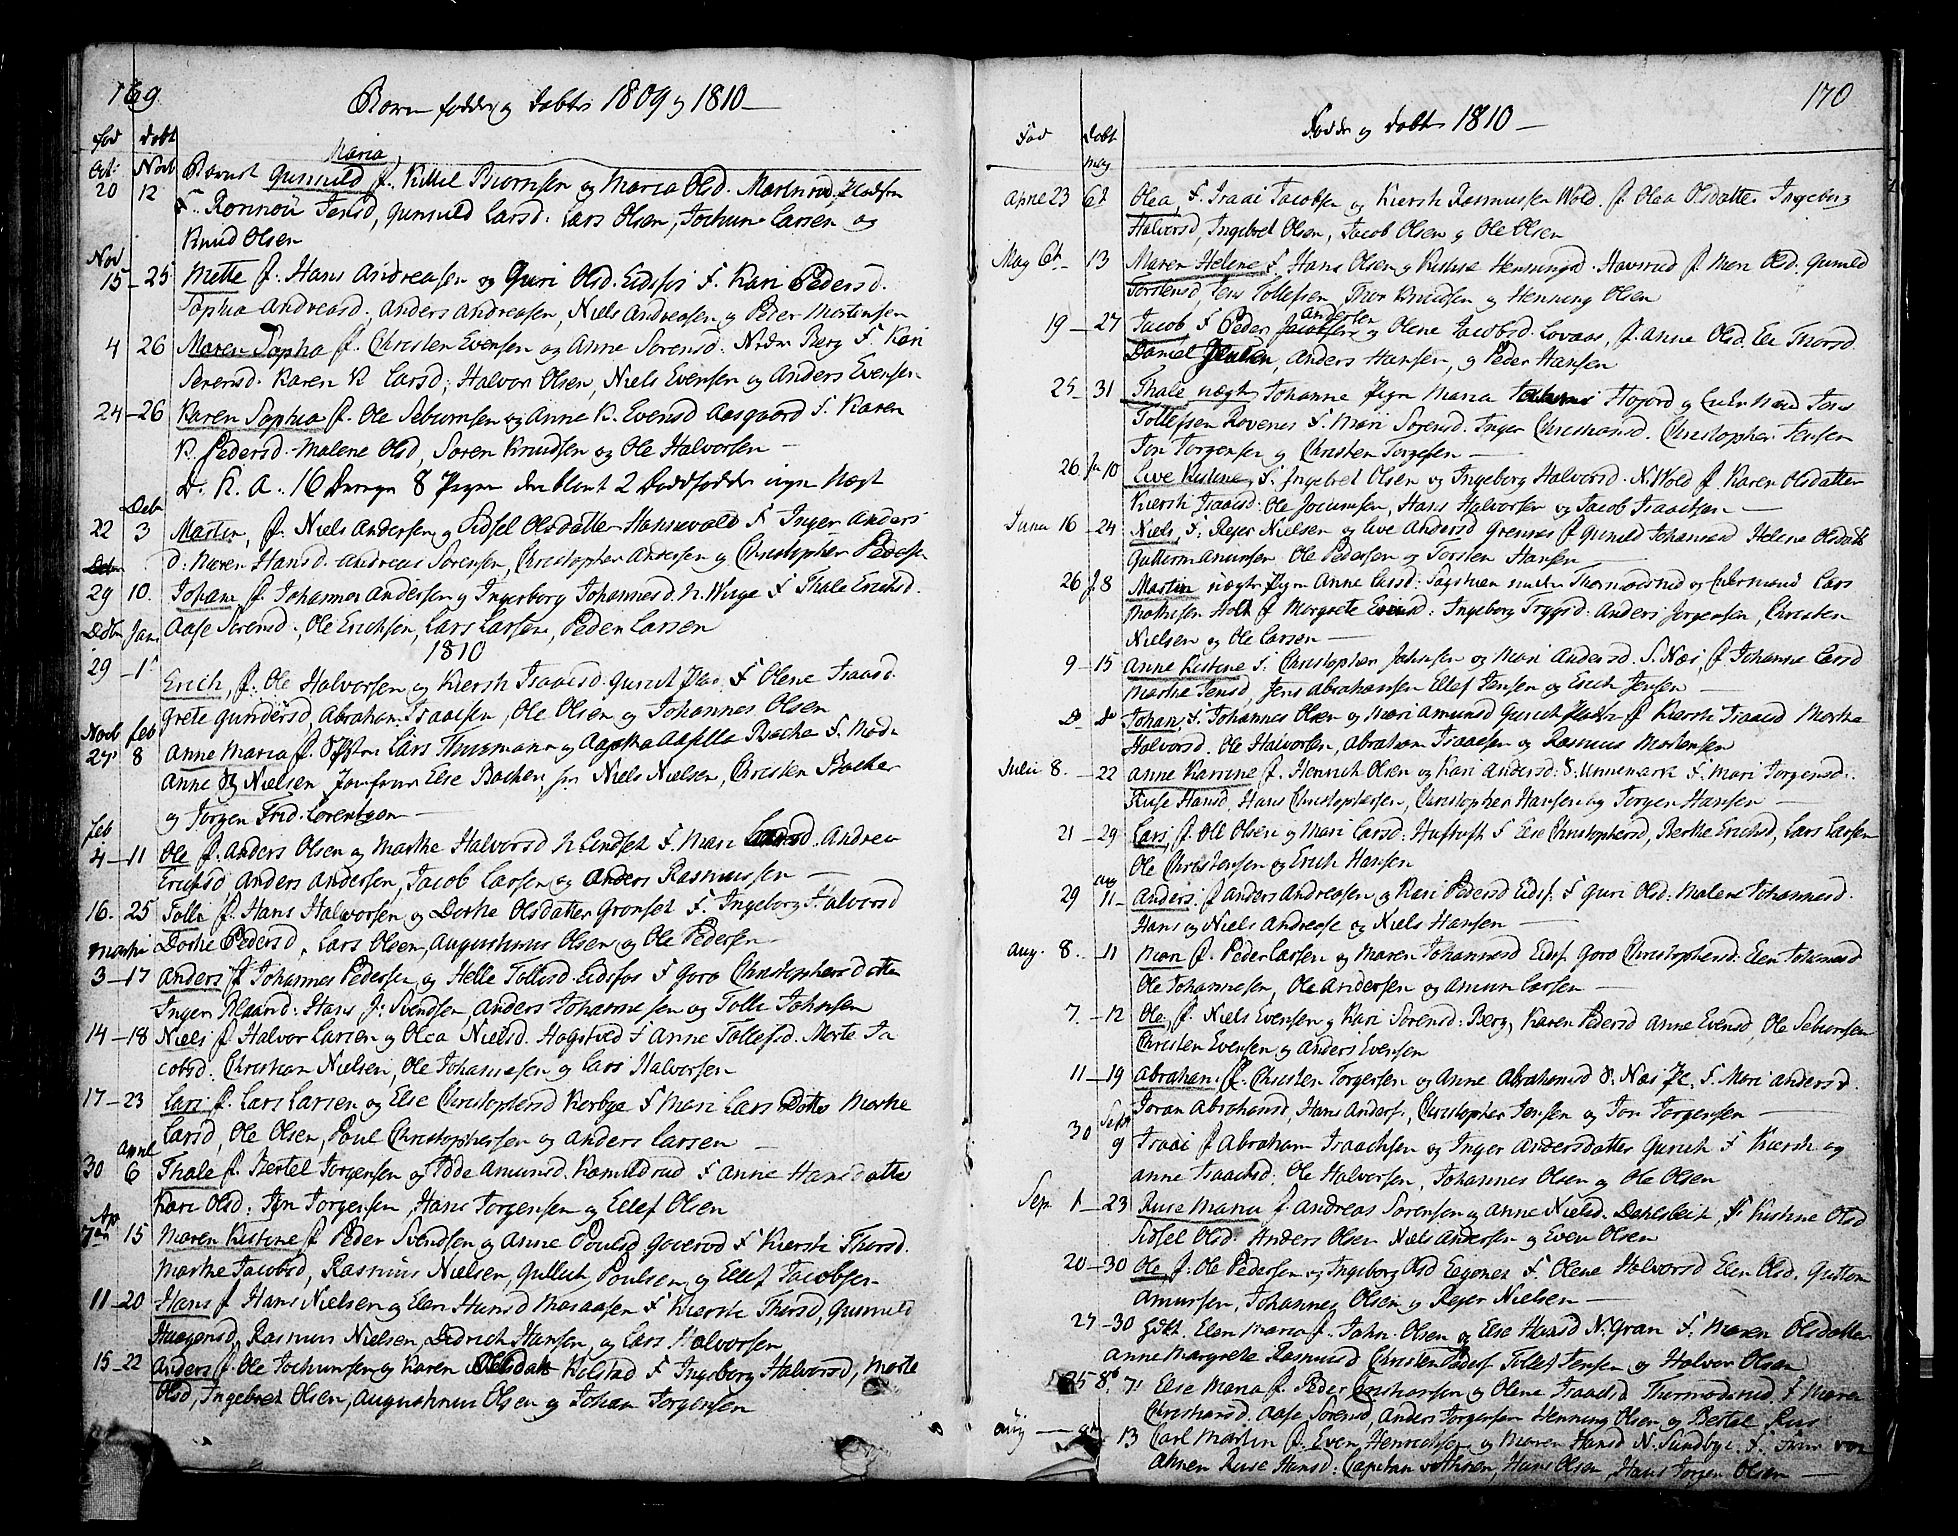 169.
Børn fødde og døbte 1809 og 1810 —
Fød Døbt
Oct: 20 Novb 12 Barnet Gunnild Maria f. Kittel Biornsen og Maria Olsd.
F. Ronnou Jensd, Gunnild Larsd: Lars Olsen, Jochum Larsen og
Knud Olsen
Nov 15 – 25 Mette f. Hans Andreasen og Guri Olsd. Eidsfos F. Kari Pedersd.
Sophia Andreasd. Anders Andreasen, Niels Andreasen og Peder Mortensen
4 26 Maren Sophia f. Christen Evensen og Anne Sorensd. Nedre Berg F. Kari
Sevensd. Karen K. Larsd, Halvor Olsen, Niels Evensen og Anders Evensen
24 – 26 Karen Sophia f. Ole Seburnsen og Anne K. Evensd Aasgaard F. Karen
K. Pedersd. Malene Olsd, Soren Knudsen og Ole Halvorsen —
D. K. A. 16 Drenge 8 Piger der blant 2 Dødfødde ingen Uægt
22 Debr 3 Martin, f. Niels Andersen og Sidsel Olsdatter Hannevold F. Inger Anders
d. Maren Hansd. Andreas Sorensen, Christopher Andersen og Christopher Pedersen
29 10. Johan f. Johannes Andersen og Ingeborg Johannesd. N. Wirge F. Thale Erichsd.
Aase Sorensd., Ole Erichsen, Lars Larsen, Peder Larsen
1810
Debr 29 – Jan 1 Erich, f. Ole Halvorsen og Kiersti Isaacsd. Gurich Plad. F. Olene Isaacsd.
Grete Gundersd, Abraham Isaacsen, Ole Olsen og Johannes Olsen
Novb 27 feb 8 Anne Maria f. Lars Thurmann og Agatha Aasille Bache F. Mad.
Anne Nielsen Jomfrue Else Bachen, hr Niels Nielsen, Christen Bacher
og Jorgen Frid. Lorentzen —
feb 4 – 11 Ole f. Anders Olsen og Marthe Halvorsd N Lindset F. Mari Larsd. Andrea
Erichsd, Anders Andersen, Jacob Larsen og Anders Rasmussen —
16. – 25 Tolle f. Hans Halvorsen og Dorthe Olsdatter Gronset F. Ingeborg Halvorsd
Dorthe Pedersd, Lars Olsen, Augustinus Olsen og Ole Pedersen
Martii 3 – 17 Anders f. Johannes Pedersen og Helle Tollesd. Eidsfos F. Goro Christophersdotter
Inger Maand: Hans J: Svendsen Anders Johannesen og Tolle Johnsen
14 – 18 Niels f. Halvor Larsen og Olea Nielsd. Hogstved F. Anne Tollefsd. Marte Ja
cobsd. Christian Nielsen, Ole Johannesen og Lars Halvorsen
17 – 23 Lars f. Lars Larsen og Else Christophersd Korbye F. Mari Lars Dotter Marthe
Larsd, Ole Olsen, Poul Christophersen og Anders Larsen —
30 Aprile 6 Thale f. Bertel Jorgensen og Amunsd. Kamildrud F. Anne Hansdotter
Kari Olsd: Jon Jorgensen, Hans Jorgensen og Ellef Olsen
Ap. 7 15 Maren Kistine f. Peder Svendsen og Anne Poulsd Goverod F. Kiersti Thorsd.
Marthe Jacobsd, Rasmus Nielsen, Gullich Poulsen, og Ellef Jacobsen
11 – 20 Hans f. Hans Nielsen og Elen Hansd Masaasen F. Kiersti Thorsd, Gunnild
Haagensd, Rasmus Nielsen, Didrich Hansen, og Lars Halvorsen
15 – 22 Anders f. Ole Jochumsen og Karen Olsdatt Kolstad F. Ingeborg Halvorsd, Marte
Olsd, Ingebret Olsen, Augustinus Olsen og Johan Jorgensen
170
Fødde og døbte 1810 —
Fød Døbt
Aprile 23 May 6t Olea, F. Isaai Jacobsen og Kiersti Rasmussen Wold. f. Olea Olsdatter Ingeborg
Halvorsd, Ingebret Olsen, Jacob Olsen og Ole Olsen
May 6t 13 Maren Helene f. Hans Olsen og Kistine Henningsd. Havsrud f. Mari Olsd. Gunild
Torstensd, Jens Tollefsen, Thor Knudsen og Henning Olsen
19 – 27 Jacob F. Peder Andersen og Olene Jacobsd. Lovaas, f. Anne Olsd. Eli Thorsd
Daniel, Anders Hansen, og Peder Hansen
25 – 31 Thale uægte Johanne Pige Maria Hojord og Jens
Tollefsen Rovenes F. Mari Sorensd. Inger Christiansd. Christopher Jensen
Jon Jorgensen og Christen Jorgensen —
26 Ju 10 Live Kistine, F. Ingebret Olsen og Ingeborg Halvorsd. N. Wold f. Karen Olsdatter
Kiersti Isaacsd. Ole Jocumsen, Hans Halvorsen og Jacob Isaachsen —
Junii 16 – 24 Niels, F. Reyer Nielsen og Live Andersd Grennes f. Gunild Johansd Helene Olsdatt
Guttorm Amunsen Ole Pedersen og Torsten Hansen —
26 J. 8 Martin uægte Pige Anne Larsd: Thormodsrud og Lars
Mathisen Holt f. Margrete Evensd: Ingeborg Trygsd. Anders Jorgensen, Christen
Nielsen og Ole Larsen —
9 – 15 Anne Kistine F. Christopher Johnsen og Mari Andersd. S. Næs f. Johanne Larsd
Marthe Jensd, Jens Abrahamsen Ellef Jensen og Erich Jensen —
Do Do Johan, F. Johannes Olsen og Mari Amunsd Gurich Pladsen f. Kiersti Isaacsd Marthe
Halvorsd. Ole Halvorsen, Abraham Isaacsen og Rasmus Mortensen
Julii 8. – 22 Anne Karrine f. Henrich Olsen og Kari Andersd: S. Unnemark F. Mari Jorgensd.
Ruse Hansd, Hans Christophersen, Christopher Hansen og Jorgen Hansen —
21 – 29 Lars, f. Ole Olsen og Mari Larsd: F. Else Christophersd, Berthe Erichsd, Lars Larsen
Ole Christensen og Erich Hansen
29 Aug 11 – Anders f. Anders Andreasen og Kari Pedersd Eidsf. F. Guri Olsd: Malene Johannesd.
Hans og Niels Andrease og Niels Hansen —
Aug. 8. – 11 Mari f. Peder Larsen og Maren Johannesd. Eidsf. Goro Christophersd. Elen Johannesd
Ole Johannesen, Ole Andersen og Amun Larsen —
7. – 12 Ole, f. Niels Evensen og Kari Sorensd: Berg, Karen Pedersd Anne Evensd, Ole Seborsen
Christen Evensen og Anders Evensen
11 – 19 Abraham f. Christen Jorgensen og Anne Abrahamsd S. Næs F. Mari Andersd.
Joran Abrahamsd, Hans Anders., Christopher Jensen og Jon Jorgensen —
30 Sept 9 Isaai f. Abraham Isaachsen og Inger Andersdatter Gurich F. Kiersti og
Anne Isaachsd: Ole Halvorsen, Johannes Olsen og Ole Olsen
Sep. 1 – 23 Ruse Maria f. Andreas Sorensen og Anne Nielsd. F. Kistine Olsd
Sidsel Olsd: Anders Olsen Niels Andersen og Even Olsen
20 – 30 Ole f. Ole Pedersen og Ingeborg Olsd F. Olene Halvorsd Elen Olsd. Guttorm
Amunsen, Johannes Olsen og Reyer Nielsen —
27 – 30 Elen Maria f. John Olsen og Else Hansd N. Gran F. Maren Olsdatter
Anne Margrete Rasmusd Christen Peders. Tollef Jensen og Halvor Olsen
25 8b 7 Else Maria f. Peder Christiansen og Olene Isaacsd Thormodsrud F. Maren
Christiansd. Aase Sorensd, Anders Jorgensen Henning Olsen og Bertel
Aug 13 Carl Martin f. Even Henrichsen og Maren Hansd N. Sundbye. F. Frue von
Ahnen Ruse Hansd: Capitain v Ahnen, Hans Olsen, Hans Jorgen Olsen —